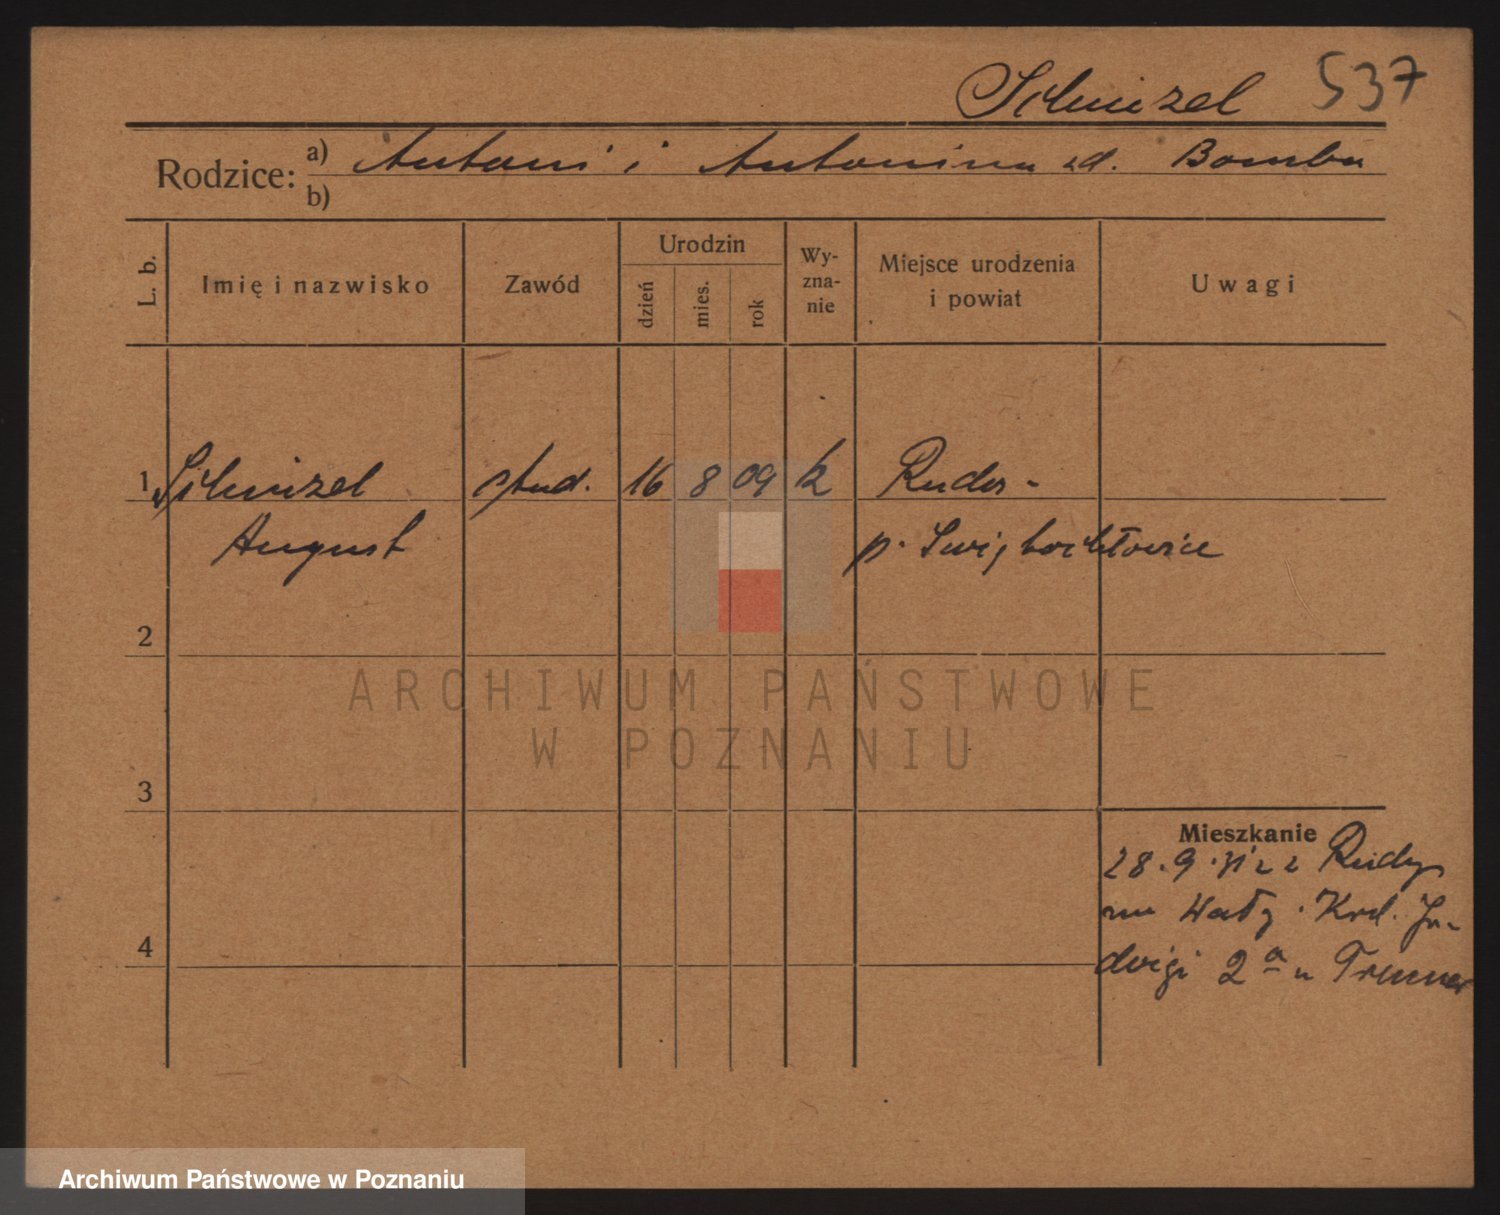 Schwizel 537
Rodzice: a) Antoni i Antonina zd. Bomba
b)
L. b. Imię i nazwisko Zawód Urodzin dzień mies. rok Wy-zna-nie Miejsce urodzenia i powiat Uwagi
1 Schwizel stud. 16 8 09 k Ruda -
August p. Świętochłowice
2
ARCHIWUM PAŃSTWOWE
W POZNANIU
3
Mieszkanie
28.9.31 z Rudy
na Wały. Król. Ja-
4
dwigi 2a u
Archiwum Państwowe w Poznaniu